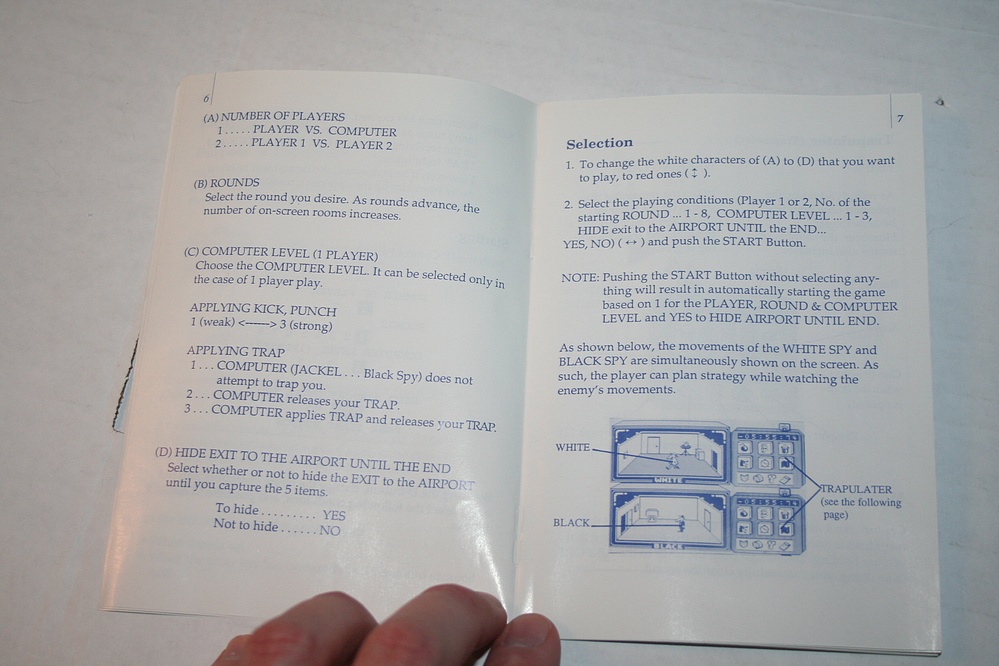 6
(A) NUMBER OF PLAYERS
1 ..... PLAYER VS. COMPUTER
2 ..... PLAYER 1 VS. PLAYER 2
(B) ROUNDS
Select the round you desire. As rounds advance, the
number of on-screen rooms increases.
(C) COMPUTER LEVEL (1 PLAYER)
Choose the COMPUTER LEVEL. It can be selected only in
the case of 1 player play.
APPLYING KICK, PUNCH
1 (weak) <----> 3 (strong)
APPLYING TRAP
1 ... COMPUTER (JACKEL ... Black Spy) does not
attempt to trap you.
2 ... COMPUTER releases your TRAP.
3 ... COMPUTER applies TRAP and releases your TRAP.
(D) HIDE EXIT TO THE AIRPORT UNTIL THE END
Select whether or not to hide the EXIT to the AIRPORT
until you capture the 5 items.
To hide ......... YES
Not to hide ...... NO
7
Selection
1. To change the white characters of (A) to (D) that you want
to play, to red ones ( ↕ ).
2. Select the playing conditions (Player 1 or 2, No. of the
starting ROUND ... 1 - 8, COMPUTER LEVEL ... 1 - 3,
HIDE exit to the AIRPORT UNTIL the END...
YES, NO) ( ↔ ) and push the START Button.
NOTE: Pushing the START Button without selecting any-
thing will result in automatically starting the game
based on 1 for the PLAYER, ROUND & COMPUTER
LEVEL and YES to HIDE AIRPORT UNTIL END.
As shown below, the movements of the WHITE SPY and
BLACK SPY are simultaneously shown on the screen. As
such, the player can plan strategy while watching the
enemy's movements.
WHITE
WHITE
TRAPULATER
(see the following
page)
BLACK
BLACK